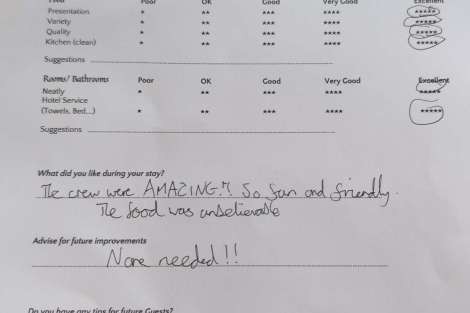 Food Poor OK Good Very Good Excellent
Presentation * ** *** **** *****
Variety * ** *** **** *****
Quality * ** *** **** *****
Kitchen (clean) * ** *** **** *****
Suggestions
Rooms/ Bathrooms Poor OK Good Very Good Excellent
Neatly * ** *** **** *****
Hotel Service
(Towels, Bed,...) * ** *** **** *****
Suggestions
What did you like during your stay?
The crew were AMAZING!! So fun and friendly.
The food was unbelievable
Advise for future improvements
None needed!!
Do you have any tips for future Guests?